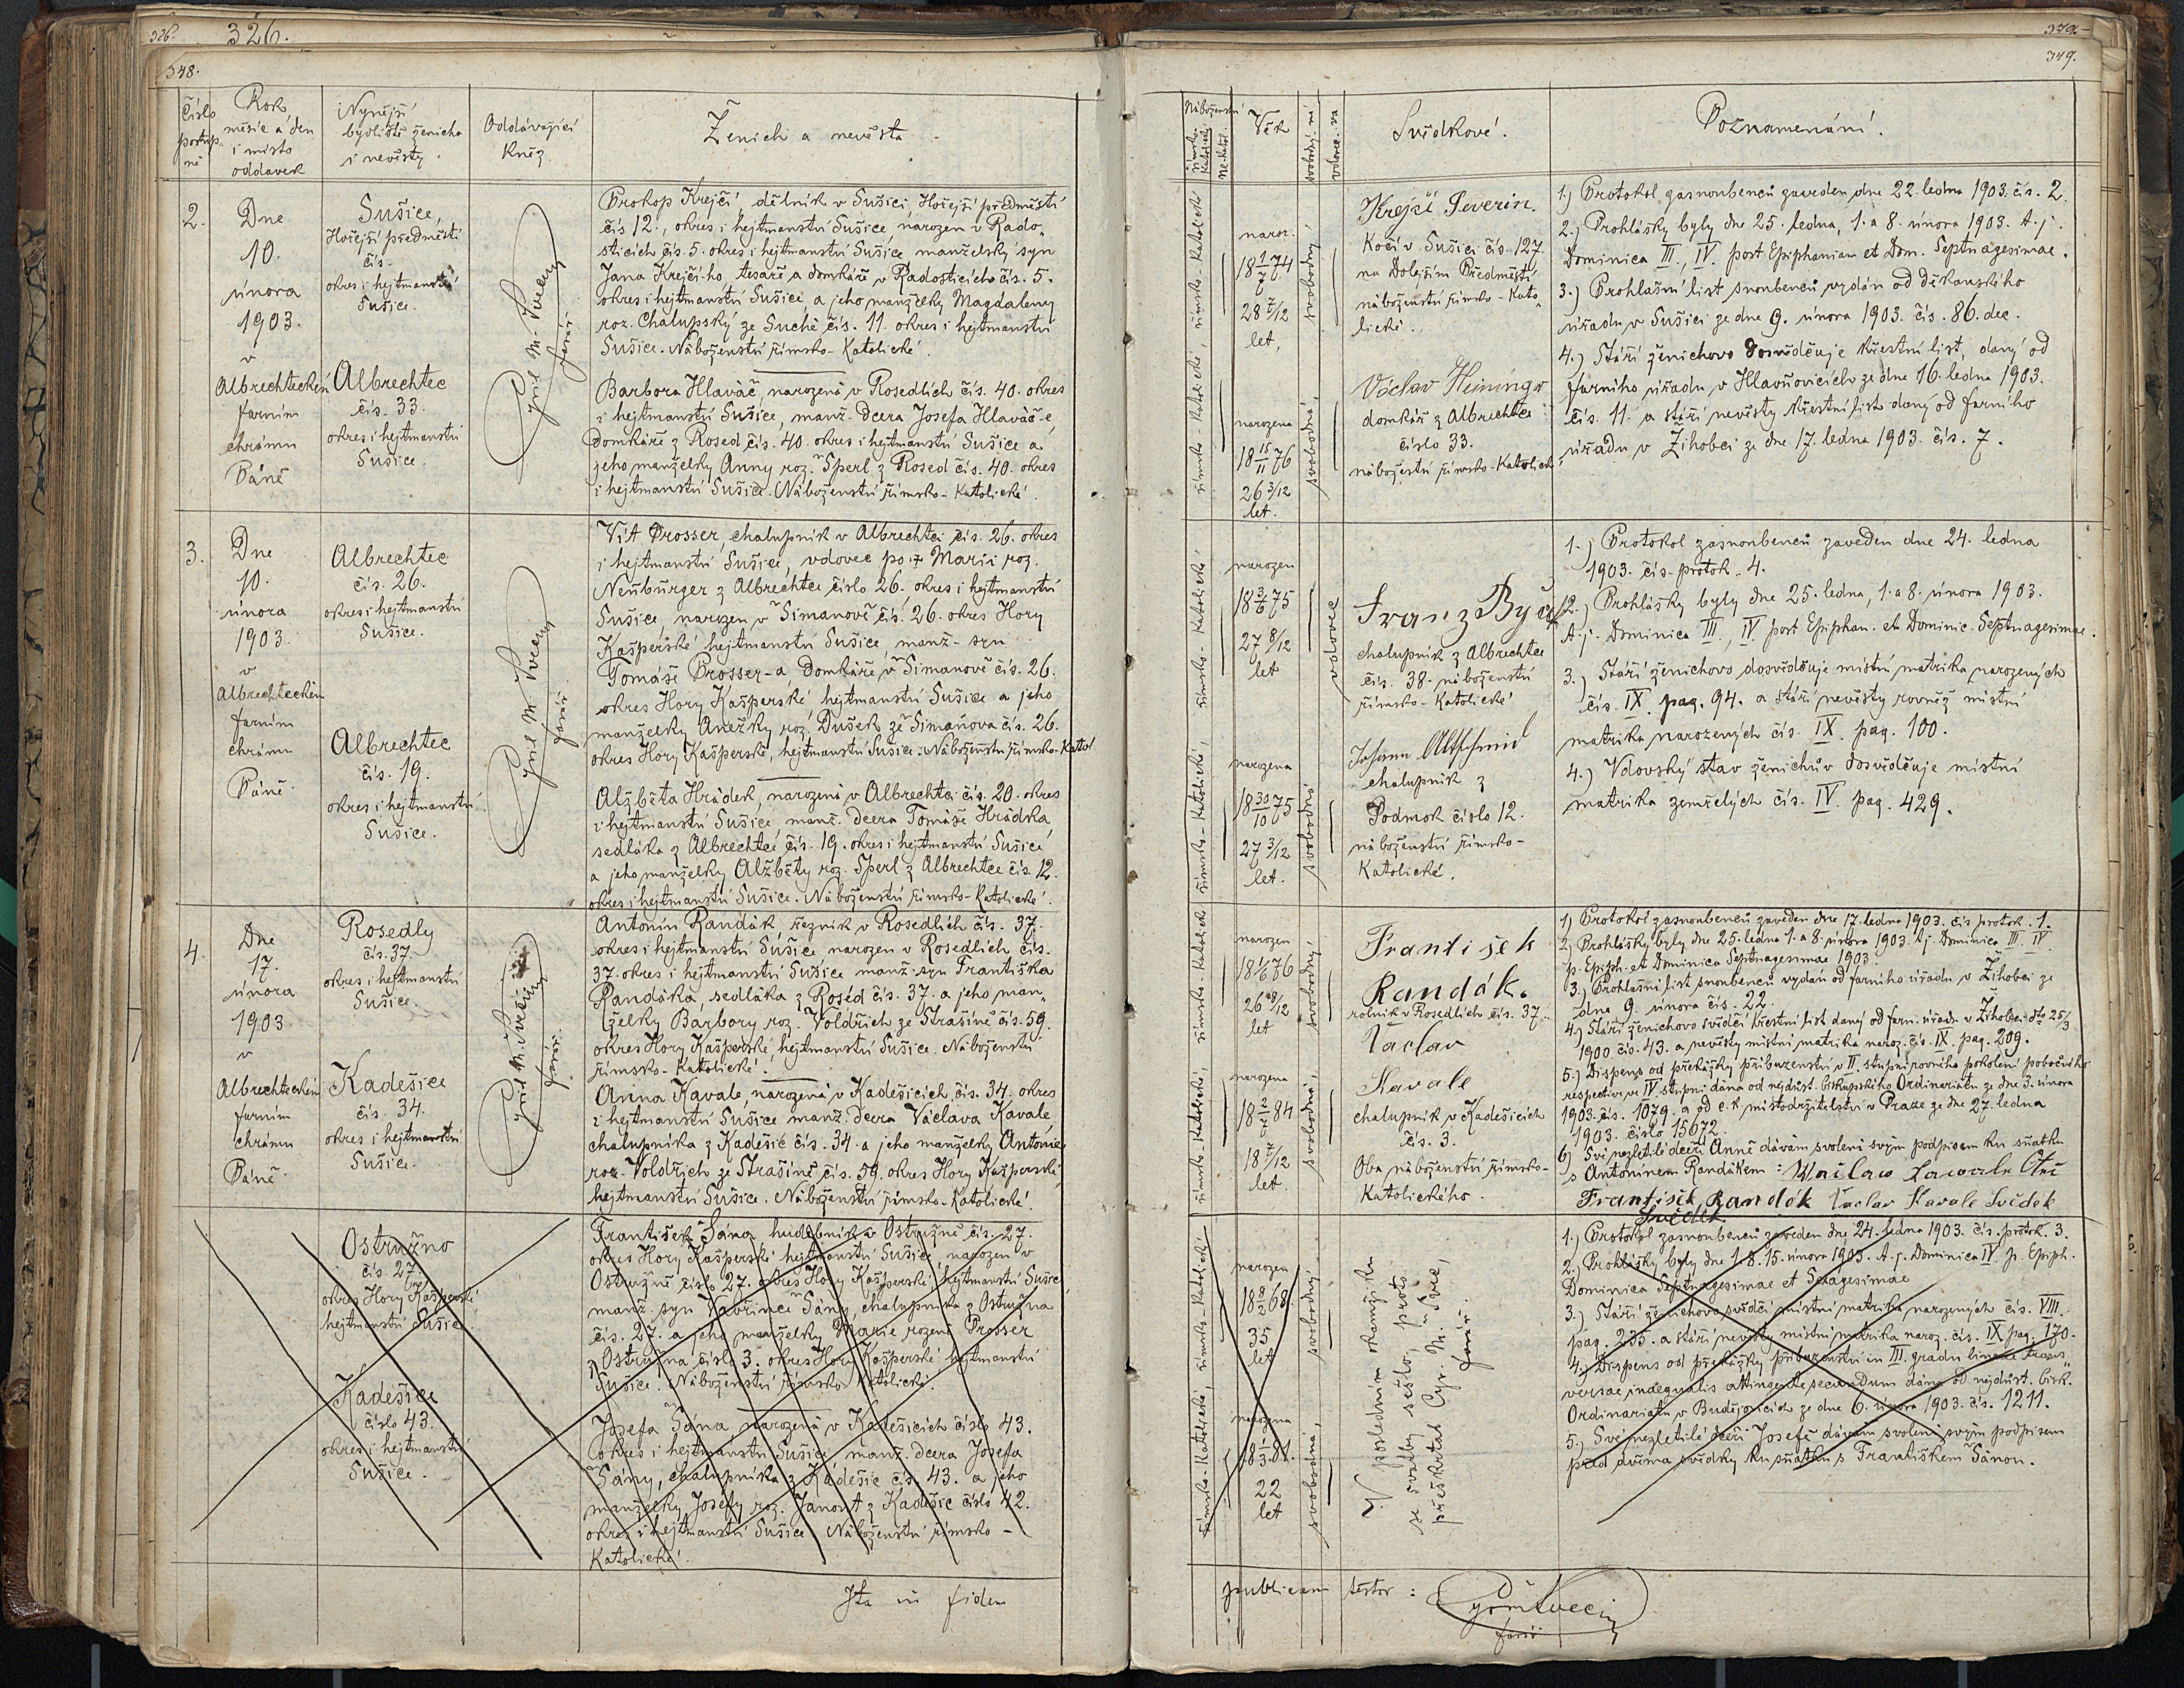 326.
326.
348.
Číslo
postup-
né
Rok,
měsíc a den
i místo
oddavek
Nynější
bydliště ženicha
i nevěsty.
Oddávající
Kněz
Ženich a nevěsta
2.
Dne
10.
února
1903.
v
Albrechteckém
farním
chrámu
Páně
Sušice,
Hořejší předměstí
čís.
okres i hejtmanství
Sušice.
Albrechtec
čís. 33.
okres i hejtmanství
Sušice.
Cyril M. Švec
farář
Prokop Krejčí, dělník v Sušici, Hořejší předměstí
čís 12., okres i hejtmanství Sušice, narozen v Rado-
sticích čís. 5. okres i hejtmanství Sušice manželský syn
Jana Krejčí-ho, tesaře a domkáře v Radosticích čís. 5.
okres i hejtmanství Sušice a jeho manželky Magdaleny
roz. Chalupský ze Suché čís. 11. okres i hejtmanství
Sušice. Náboženství římsko-Katolické.
Barbora Hlaváč, narozená v Rosedlích čís. 40. okres
i hejtmanství Sušice, manž. dcera Josefa Hlaváč-e,
domkáře z Rosed čís. 40. okres i hejtmanství Sušice a
jeho manželky Anny roz. Šperl z Rosed čís. 40. okres
i hejtmanství Sušice. Náboženství římsko-Katolické.
3.
Dne
10.
února
1903.
v
Albrechteckém
farním
chrámu
Páně.
Albrechtec
čís. 26.
okres i hejtmanství
Sušice.
Albrechtec
čís. 19.
okres i hejtmanství
Sušice.
Cyril M. Švec
farář
Vít Prosser, chalupník v Albrechtci čís. 26. okres
i hejtmanství Sušice, vdovec po † Marii roz.
Neubürger z Albrechtce číslo 26. okres i hejtmanství
Sušice, narozen v Šimanově čís. 26. okres Hory
Kašperské hejtmanství Sušice, manž- syn
Tomáše Prosser-a, domkáře v Šimanově čís. 26.
okres Hory Kašperské hejtmanství Sušice a jeho
manželky Anežky roz. Dušek ze Šimanova čís. 26.
okres Hory Kašperské, hejtmanství Sušice. Náboženství římsko-Katol.
Alžběta Hrádek, narozená v Albrechtci čís. 20. okres
i hejtmanství Sušice, manž. dcera Tomáše Hrádka,
sedláka z Albrechtce čís. 19. okres i hejtmanství Sušice
a jeho manželky Alžběty roz. Šperl z Albrechtce čís. 12.
okres i hejtmanství Sušice. Náboženství římsko-Katolické.
4.
Dne
17.
února
1903
v
Albrechteckém
farním
chrámu
Páně.
Rosedly
čís. 37.
okres i hejtmanství
Sušice.
Kadešice
čís. 34.
okres i hejtmanství
Sušice.
Cyril M. Švec
farář.
Antonín Randák, řezník v Rosedlích čís. 37.
okres i hejtmanství Sušice narozen v Rosedlích čís.
37. okres i hejtmanství Sušice manž. syn Františka
Randáka, sedláka z Rosed čís. 37. a jeho man-
želky Barbory roz. Voldřich ze Strašíně čís. 59.
okres Hory Kašperské hejtmanství Sušice. Náboženství
římsko-Katolické.
Anna Kavale, narozená v Kadešicích, čís. 34. okres
i hejtmanství Sušice manž. dcera Václava Kavale,
chalupníka z Kadešic čís. 34. a jeho manželky Antonie
roz. Voldřich ze Strašíně čís. 59. okres Hory Kašperské,
hejtmanství Sušice. Náboženství římsko-Katolické.
Ostružno
čís. 27.
okres Hory Kašperské
hejtmanství Sušice.
Kadešice
číslo 43.
okres i hejtmanství
Sušice.
František Šána, hudebník v Ostružně čís. 27.
okres Hory Kašperské hejtmanství Sušice, narozen v
Ostružně číslo 27. okres Hory Kašperské hejtmanství Sušice,
manž. syn Vavřince Šány, chalupníka z Ostružna
čís. 27. a jeho manželky Marie rozené Prosser
z Ostružna číslo 3. okres Hory Kašperské hejtmanství
Sušice. Náboženství římsko-Katolické.
Josefa Šána, narozená v Kadešicích číslo 43.
okres i hejtmanství Sušice, manž. dcera Josefa
Šány, chalupníka z Kadešic čís. 43. a jeho
manželky Josefy roz. Janout z Kadešic číslo 42.
okres i hejtmanství Sušice. Náboženství římsko-
Katolické.
Ita in fidem
379.
349.
Náboženství
římsko
Katolické
ne-Katol.
Věk
svobodný, ná
vdovec, va
Svědkové.
Poznamenání.
římsko-Katolické, římsko-Katolické
naroz.
18 1/7 74
28 7/12
let,
svobodný
narozena
18 15/11 76
26 3/12
let.
svobodná
Krejčí Severin.
kočí v Sušici čís. 127.
na Dolejším Předměstí
náboženství římsko-Kato-
lické.
Václav Heininger
domkář z Albrechtce
číslo 33.
náboženství římsko-Katolické
1.) Protokol zasnoubenců zaveden dne 22. ledna 1903. čís. 2.
2.) Prohlášky byly dne 25. ledna, 1. a 8. února 1903. t. j.
Dominica III., IV. post Epiphaniam et Dom. Septuagesimae.
3.) Prohlašní list snoubenců vydán od děkanského
úřadu v Sušici ze dne 9. února 1903. čís. 86. dec.
4.) Stáří ženichovo dosvědčuje Křestní list, daný od
farního úřadu v Hlavňovicích ze dne 16. ledna 1903.
čís. 11. a stáří nevěsty Křestní list daný od farního
úřadu v Žihobci ze dne 17. ledna 1903. čís. 7.
římsko-Katolické, římsko-Katolické
narozen
18 3/6 75
27 8/12
let
vdovec
narozena
18 30/10 75
27 3/12
let.
svobodná
Franz
chalupník z Albrechtce
čís. 38. náboženství
římsko-Katolické
Johann Altschmid
chalupník z
Podmok číslo 12.
náboženství římsko-
Katolické.
1.) Protokol zasnoubenců zaveden dne 24. ledna
1903. čís. protok. 4.
2.) Prohlášky byly dne 25. ledna, 1. a 8. února 1903.
t. j. Dominica III., IV post Epiphan. et Dominic. Septuagesimae.
3.) Stáří ženichovo dosvědčuje místní matrika narozených
čís. IX. pag. 94. a stáří nevěsty rovněž místní
matrika narozených čís. IX. pag. 100.
4.) Vdovský stav ženichův dosvědčuje místní
matrika zemřelých čís. IV. pag. 429.
římsko-Katolické, římsko-Katolické
narozen
18 1/6 76
26 8/12
let
svobodný
narozena
18 2/7 84
18 7/12
let.
svobodná
František
Randák.
rolník v Rosedlích čís. 37.
Vaclav
Kavale
chalupník v Kadešicích
čís. 3.
Oba náboženství římsko-
Katolického.
1) Protokol zasnoubenců zaveden dne 17. ledna 1903. čís. protok. 1.
2) Prohlášky byly dne 25. ledna 1. a 8. února 1903. t. j. Dominica III. IV
p. Epiph. et Dominica Septuagesimae 1903.
3.) Prohlašní list snoubenců vydán od farního úřadu v Žihobci ze
dne 9. února čís. 22.
4) Stáří ženichovo svědčí Křestní list daný od farn. úřadu v Žihobci dto 25/3
1900 čís. 43. a nevěsty místní matrika naroz. čís. IX. pag. 209.
5.) Dispens od překážky příbuzenství v II. stupni rovného pokolení pobočního
respective ve IV stupni dána od nejdůst. biskupského Ordinariátu ze dne 3. února
1903. čís. 1079. a od c. k. místodržitelství v Praze ze dne 27. ledna
1903. číslo 15672.
6) Své nezletilé dceři Anně dávám svolení svým podpisem ku sňatku
s Antonínem Randákem: Wáclaw Kawale Otec
František Randák Vaclav Kavale Svědek
Svědek
římsko-Katolické, římsko-Katolické
narozen
18 8/2 68.
35
let
svobodný
narozena
18 1/3 81.
22
let
svobodná
V posledním okamžiku
se svatby sešlo, proto
přeškrtal Cyr. M. Švec,
farář.
1.) Protokol zasnoubenců zaveden dne 24. ledna 1903. čís. protok. 3.
2.) Prohlášky byly dne 1. 8. 15. února 1903. t. j. Dominica IV p. Epiph.
Dominica Septuagesimae et Sexagesimae
3.) Stáří ženichovo svědčí místní matrika narozených čís. VIII.
pag. 235. a stáří nevěsty místní matrika naroz. čís. IX pag. 170.
4.) Dispens od překážky příbuzenství in III. gradu lineae trans-
versae inaequalis attingente secundum dána od nejdůst. bisk.
Ordinariátu v Budějovicích ze dne 6. února 1903. čís. 1211.
5.) Své nezletilé dceři Josefě dávám svolení svým podpisem
před dvěma svědky ku sňatku s Františkem Šánou.
publicam testor:
Cyril M. Švec
farář